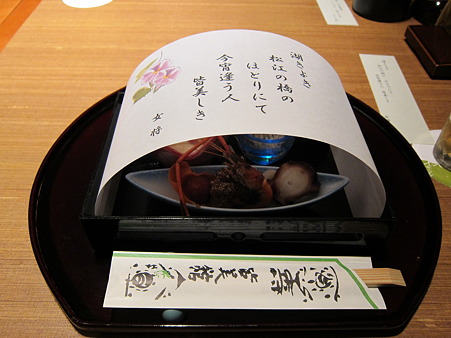 湖きよき
松江の橋の
ほとりにて
今宵逢う人
皆美しき
女将
皆美館